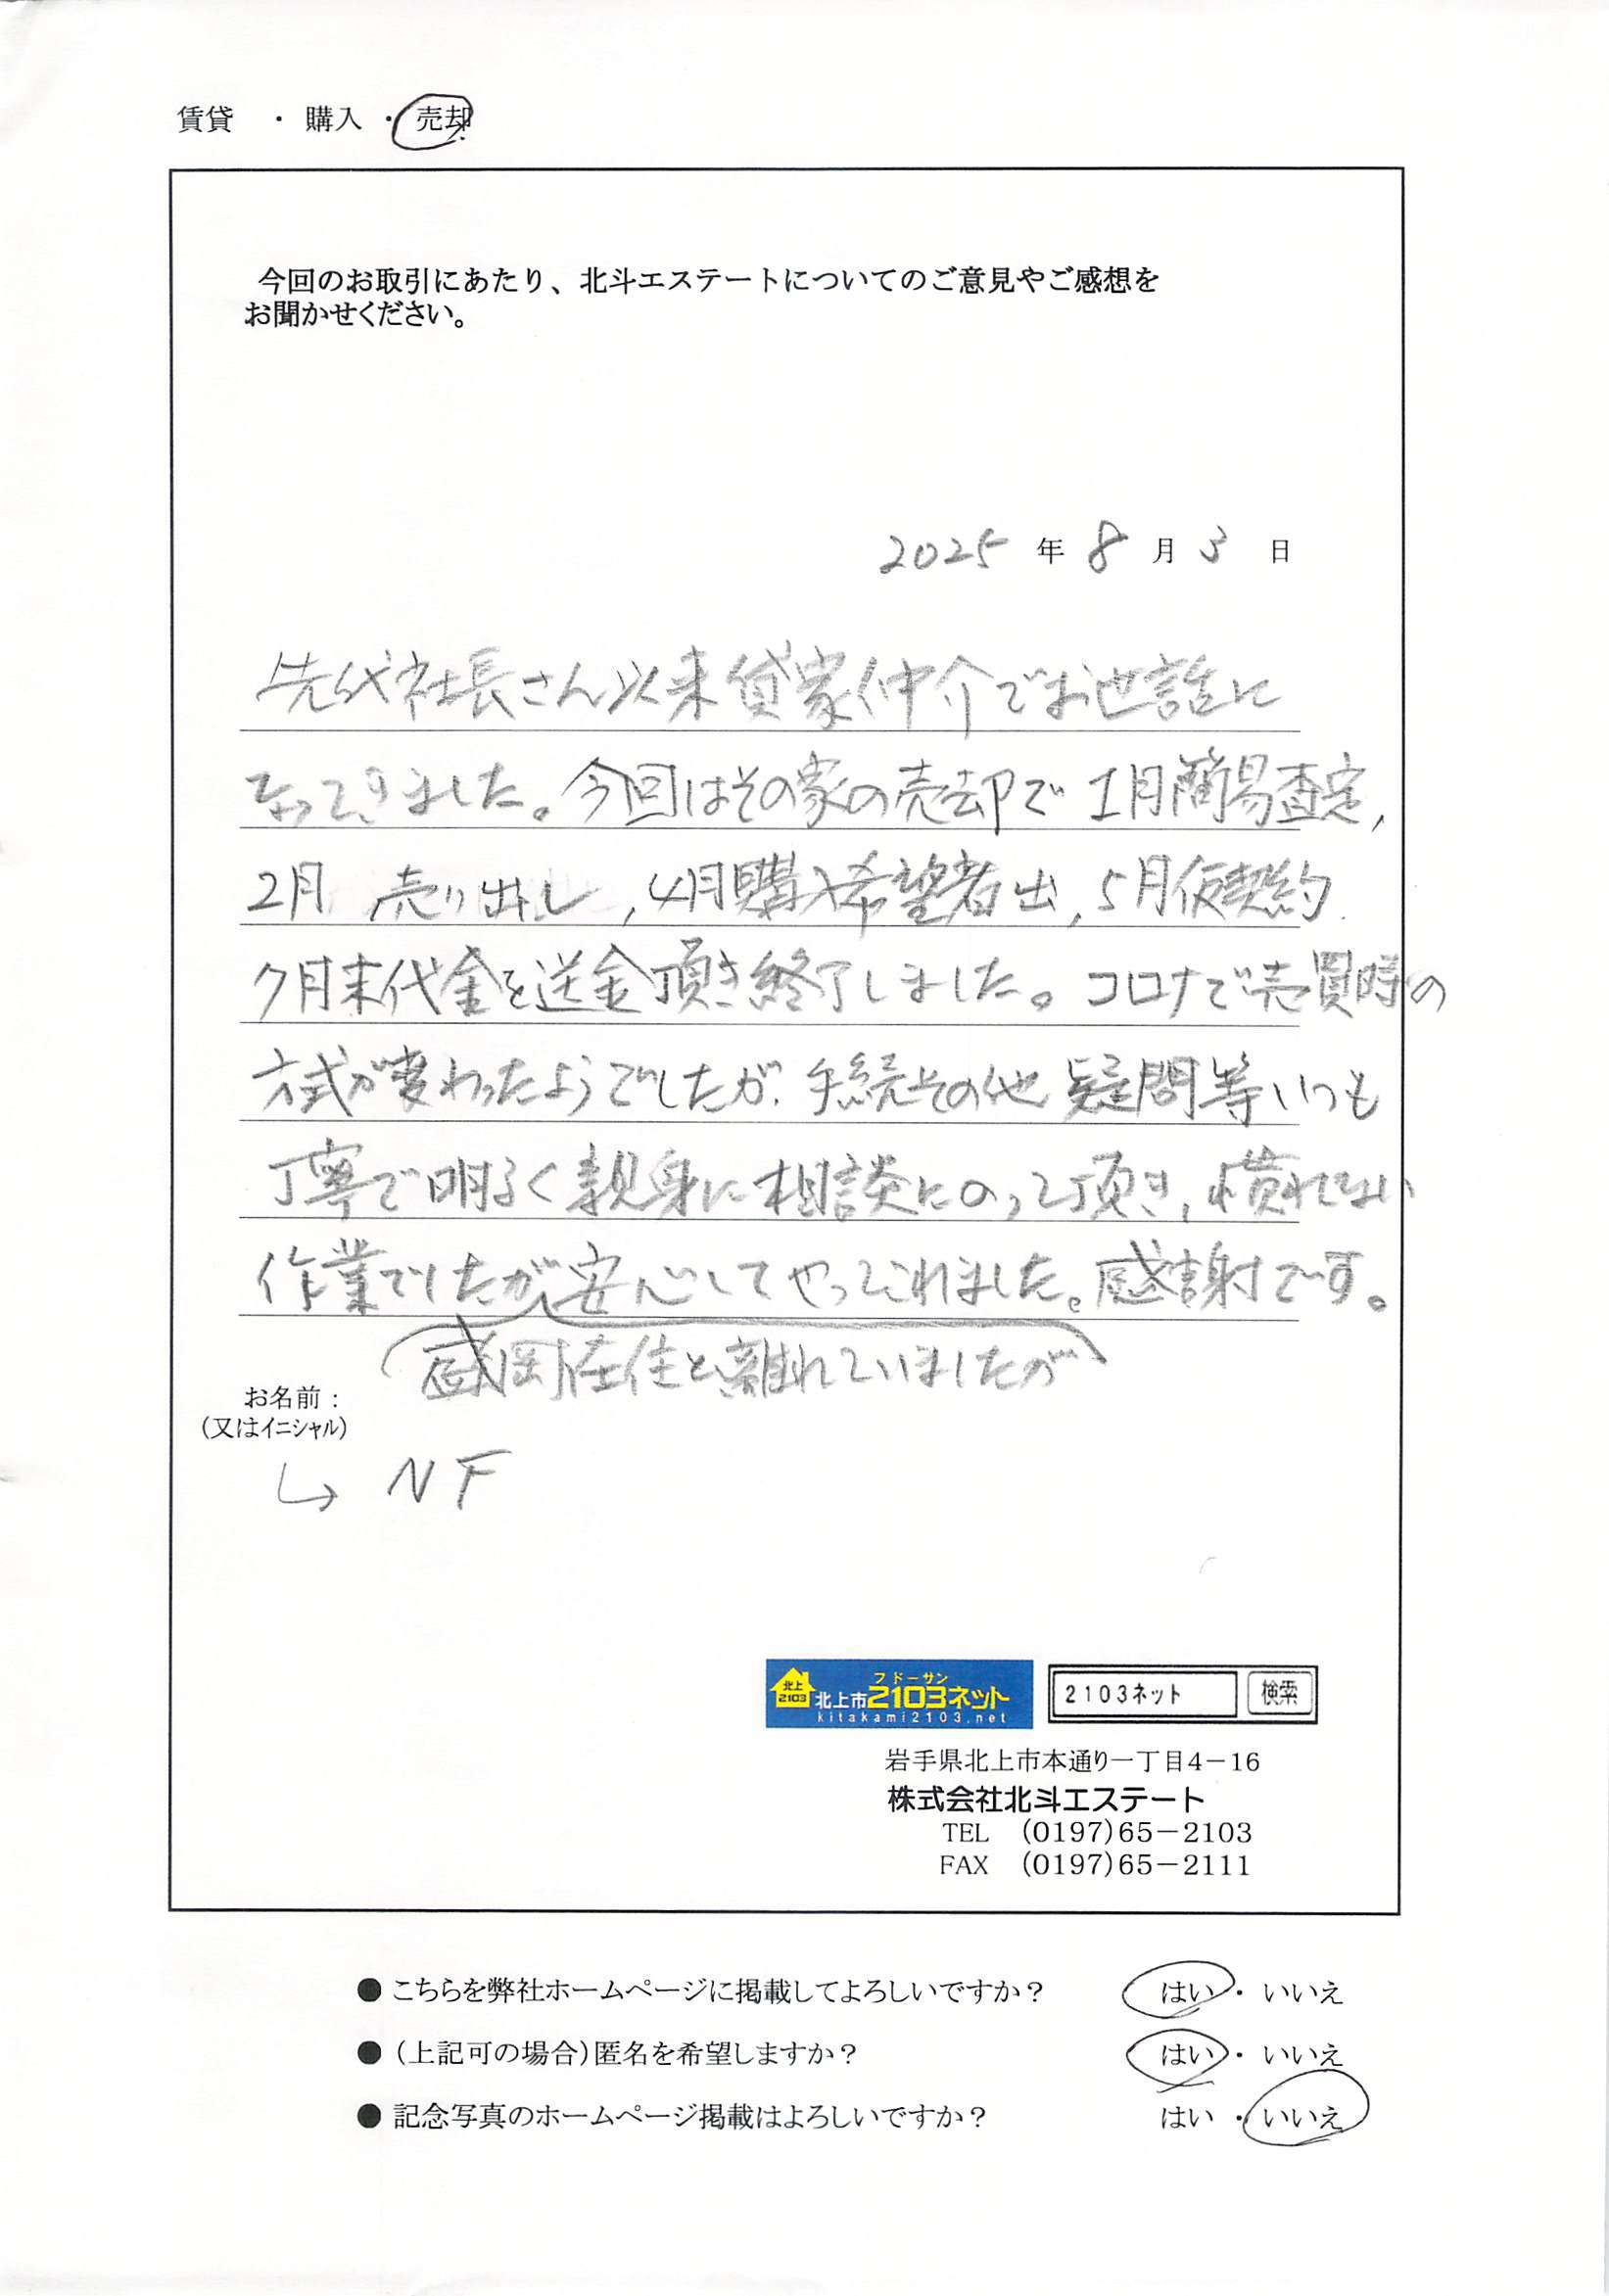 賃貸 ・ 購入 ・ 売却
今回のお取引にあたり、北斗エステートについてのご意見やご感想を
お聞かせください。
2025 年 8 月 3 日
先代社長さん以来貸家仲介でお世話に
なってきました。今回はその家の売却で 1月簡易査定,
2月 売り出し,4月購入希望者出,5月仮契約
7月末代金を送金頂き終了しました。コロナで売買時の
方式が変わったようでしたが、手続その他 疑問等いつも
丁寧で明るく親身に相談にのって頂き,慣れない
作業でしたが安心してやってこれました。感謝です。
盛岡在住と離れていましたが
お名前:
(又はイニシャル)
↳ NF
フドーサン
北上 2103 北上市2103ネット
kitakami2103.net
2103ネット 検索
岩手県北上市本通り一丁目4−16
株式会社北斗エステート
TEL (0197)65−2103
FAX (0197)65−2111
● こちらを弊社ホームページに掲載してよろしいですか? はい ・ いいえ
● (上記可の場合)匿名を希望しますか? はい ・ いいえ
● 記念写真のホームページ掲載はよろしいですか? はい ・ いいえ